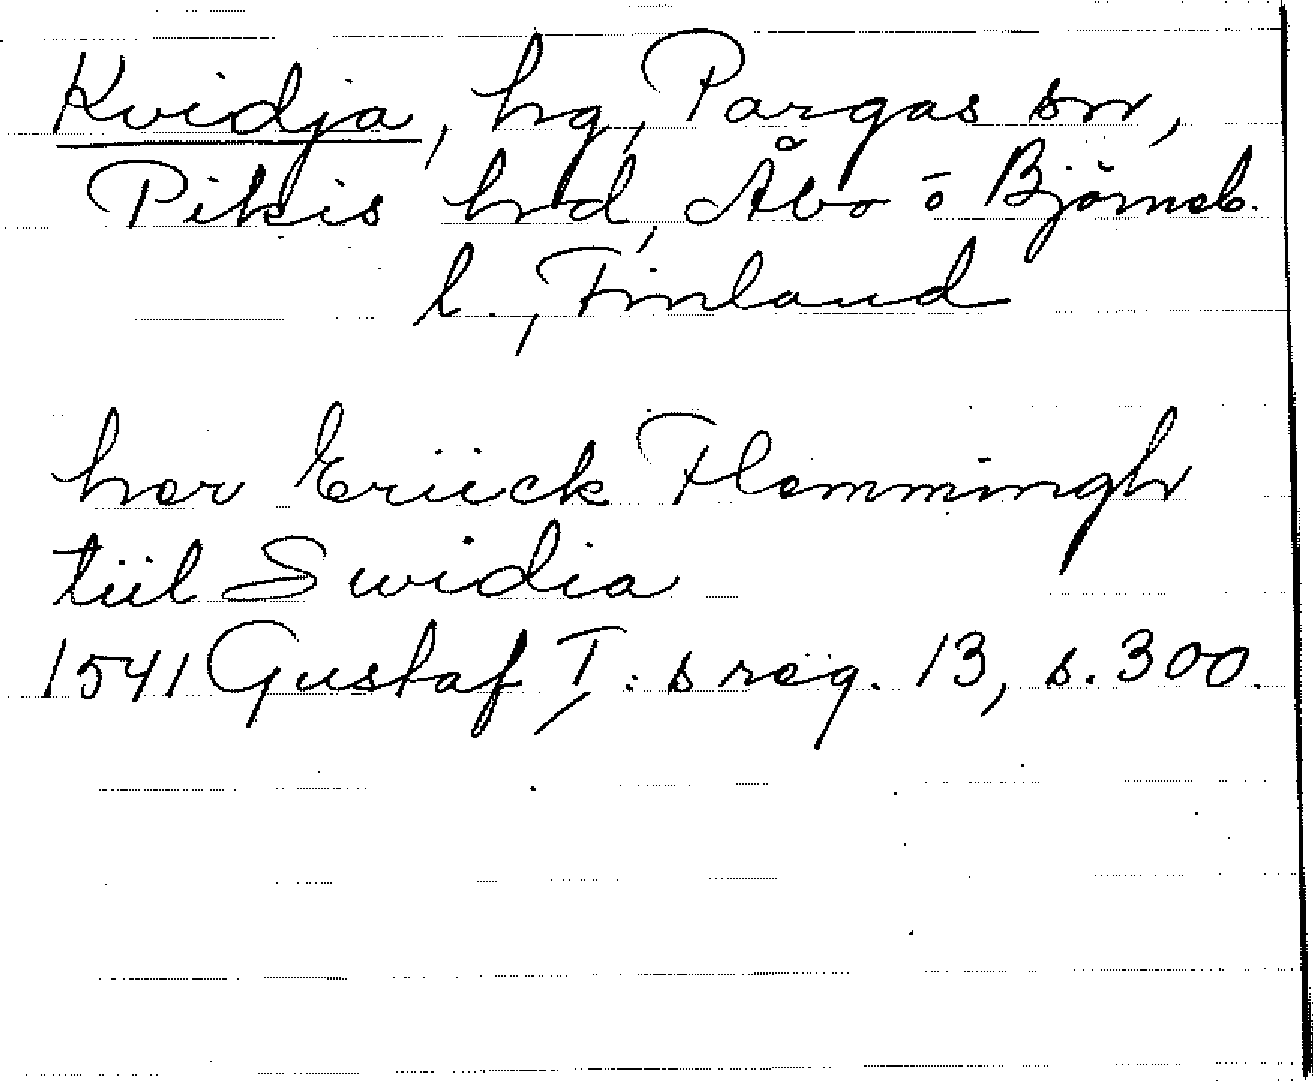 Kvidja, hg, Pargas sn,
Pikis hrd, Åbo o Björneb.
l., Finland
her Eriick Flemmingh
tiil Swidia
1541 Gustaf I:s reg. 13, s. 300.